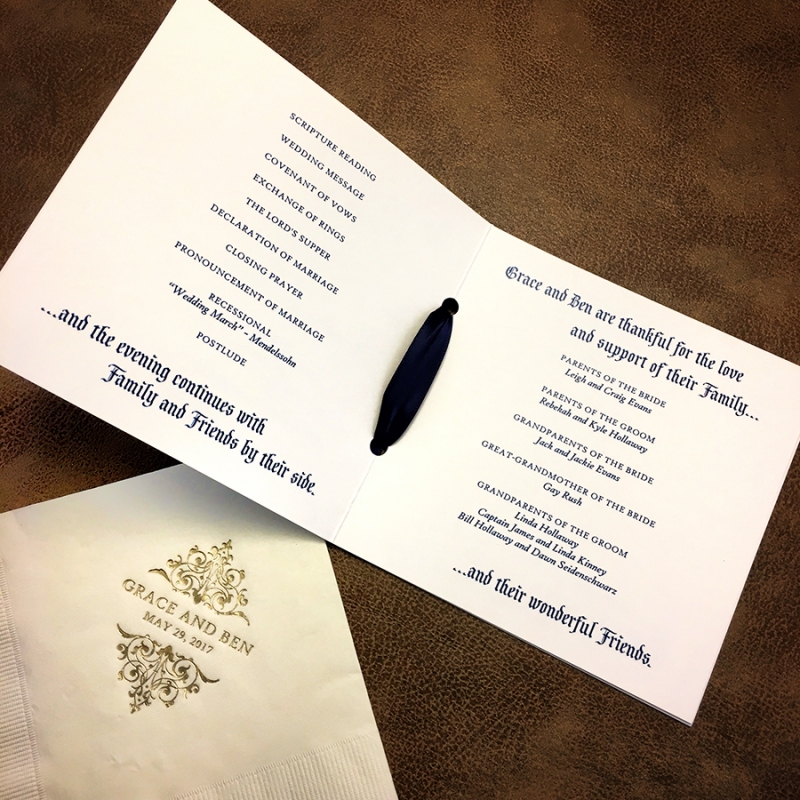 SCRIPTURE READING
WEDDING MESSAGE
COVENANT OF VOWS
EXCHANGE OF RINGS
THE LORD'S SUPPER
DECLARATION OF MARRIAGE
CLOSING PRAYER
PRONOUNCEMENT OF MARRIAGE
RECESSIONAL
"Wedding March" - Mendelssohn
POSTLUDE
...and the evening continues with
Family and Friends by their side.
Grace and Ben are thankful for the love
and support of their Family...
PARENTS OF THE BRIDE
Leigh and Craig Evans
PARENTS OF THE GROOM
Rebekah and Kyle Hollaway
GRANDPARENTS OF THE BRIDE
Jack and Jackie Evans
GREAT-GRANDMOTHER OF THE BRIDE
Gay Rush
GRANDPARENTS OF THE GROOM
Linda Hollaway
Captain James and Linda Kinney
Bill Hollaway and Dawn Seidenschwarz
...and their wonderful Friends.
GRACE AND BEN
MAY 29, 2017